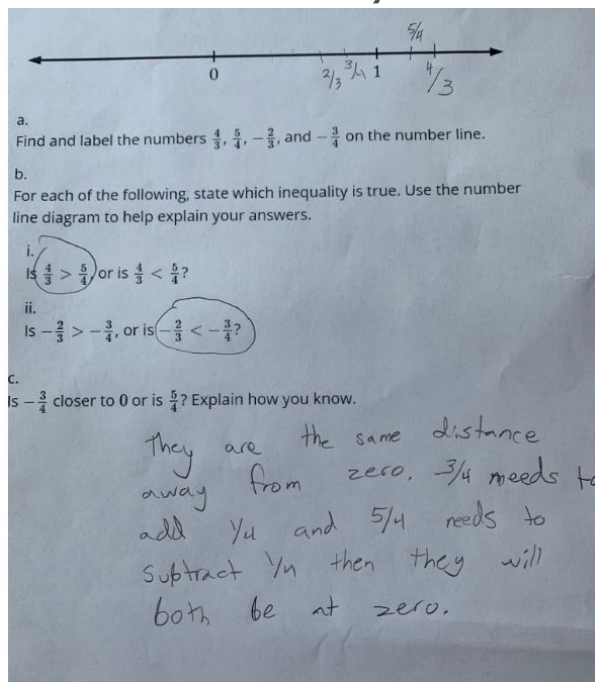 5/4
0 2/3 3/4 1 4/3
a.
Find and label the numbers 4/3, 5/4, −2/3, and −3/4 on the number line.
b.
For each of the following, state which inequality is true. Use the number
line diagram to help explain your answers.
i.
Is 4/3 > 5/4, or is 4/3 < 5/4?
ii.
Is −2/3 > −3/4, or is −2/3 < −3/4?
c.
Is −3/4 closer to 0 or is 5/4? Explain how you know.
They are the same distance
away from zero. 3/4 needs to
add 1/4 and 5/4 needs to
subtract 1/4 then they will
both be at zero.